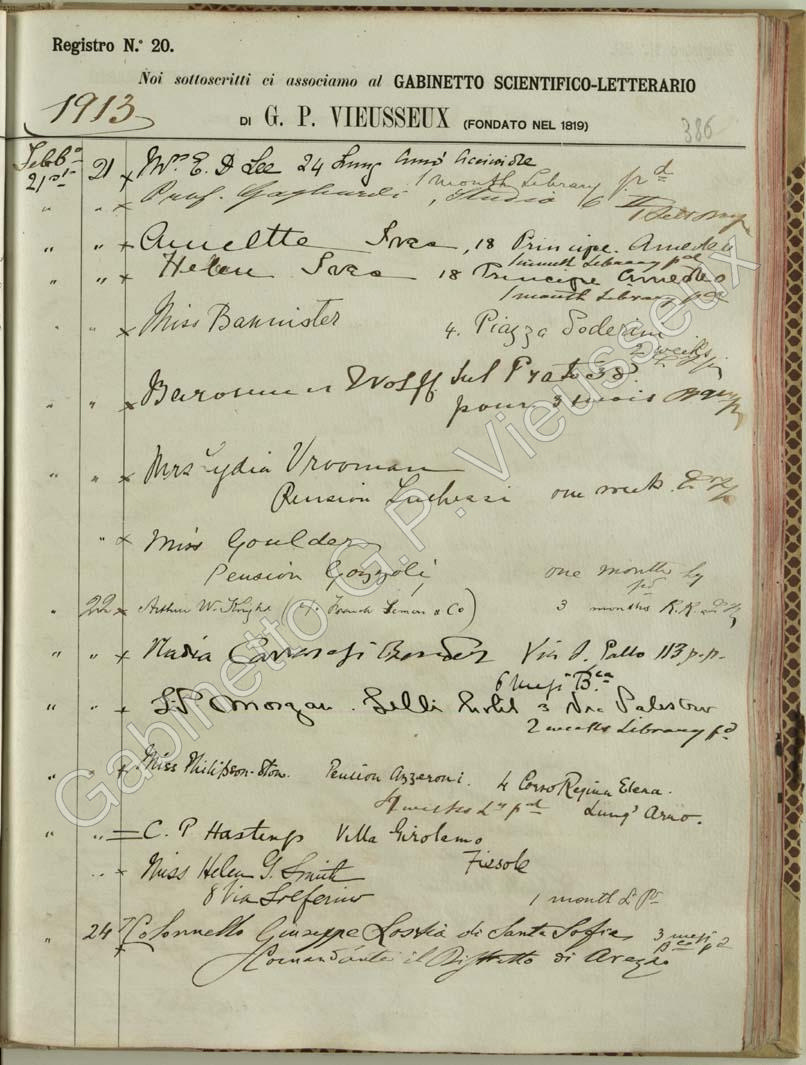 Registro N.° 20.
Noi sottoscritti ci associamo al GABINETTO SCIENTIFICO-LETTERARIO
1913
DI G. P. VIEUSSEUX (FONDATO NEL 1819)
386
21 × Mrs E. D Lee 24 Lung Arno Acciaiole
21st 1 month Library pd
" " × Prof. Gagliardi, Studio 6
" " × Annette Ives, 18 Principe Amedeo
1 month Library pd
" " × Helen Ives 18 Principe Amedeo
1 month Library pd
" " × Miss Bannister 4. Piazza Soderini
2 weeks
" " × Wolff sul Prato 38
pour 3 mois
" " × Mrs Lydia Vrooman
Pension Lucchesi one week
" × Miss Goulder
Pension Gozzoli one month
pd
" 22 × Arthur W. (c/o French Lemon & Co) 3 months R.R.
" " × Maria Via P. 113 p.p.
6 mesi Bca
" " × Morgan. Hotel 3 Via Palestro
2 weeks Library pd
" " × Miss Philipson-Stow. Pension Azzeroni. 4 Corso Regina Elena.
pd Lung' Arno.
" " = C. P Hastings Villa Girolamo
Fiesole
" × Miss Helen G. Smith
8 Via Solferino 1 month
" 24 Colonnello Giuseppe di Santa Sofia 3 mesi
× il Distretto di Arezzo
Gabinetto G.P. Vieusseux